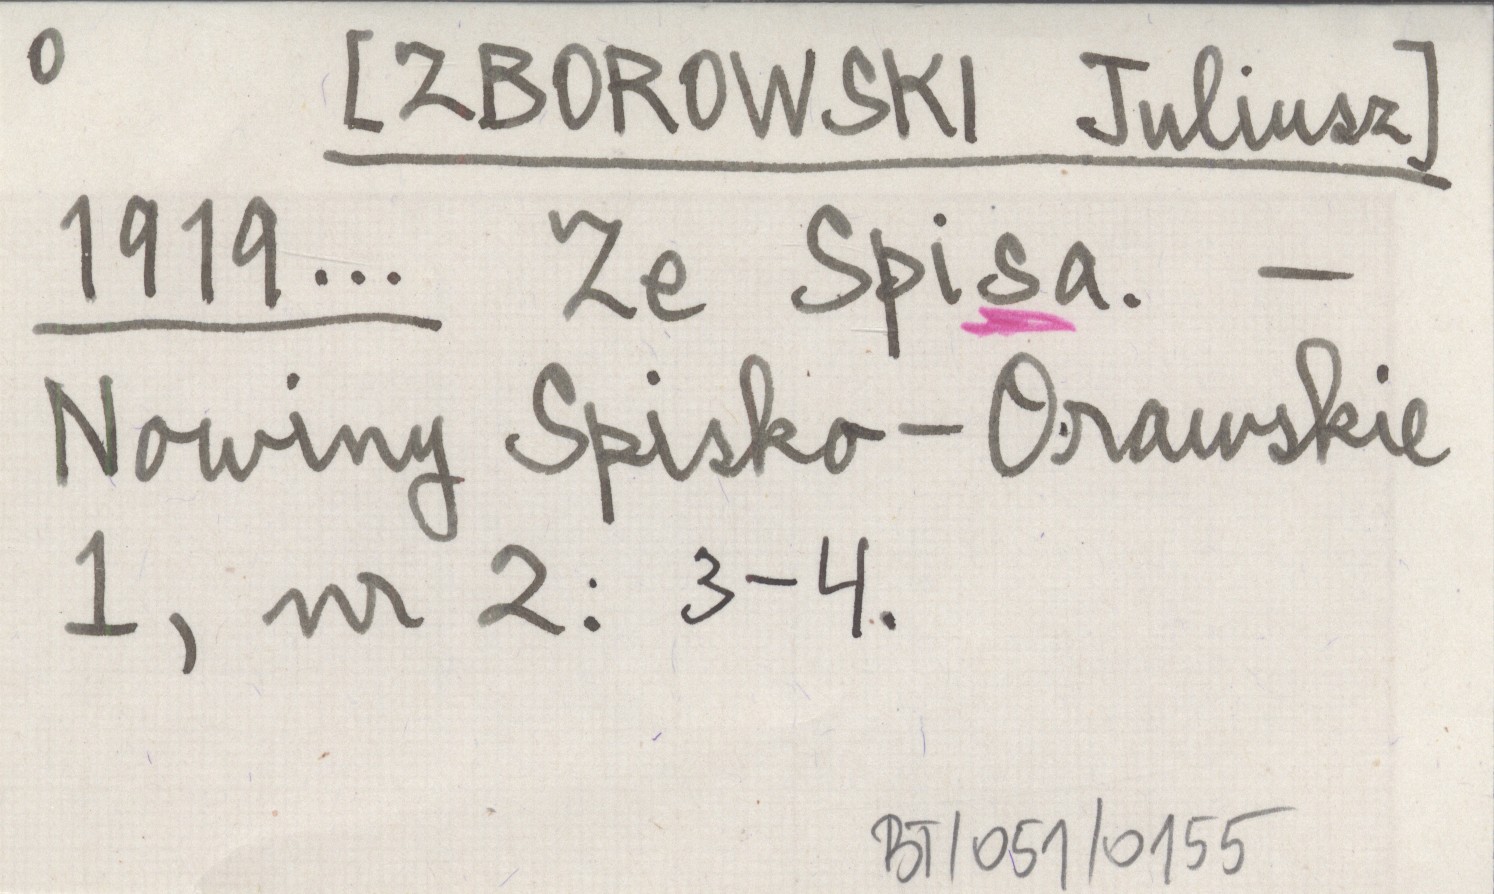 0 [ZBOROWSKI Juliusz]
1919... Ze Spisa. —
Nowiny Spisko-Orawskie
1, nr 2: 3-4.
BT/051/0155